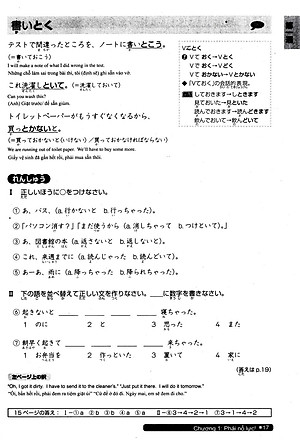 書いとく
テストで間違ったところを、ノートに書いとこう。
(＝書いておこう)
I will make a note of what I did wrong in the test.
Những chỗ làm sai trong bài thi, tôi (định sẽ) ghi sẵn vào vở.
これ洗濯しといて。(＝洗濯しておいて)
Can you wash this?
(Anh) Giặt trước/ để sẵn giùm.
トイレットペーパーがもうすぐなくなるから、
買っとかないと。
(＝買っておかないと(いけない) ／買っておかなければならない)
We are running out of toilet paper. We'll have to buy some more.
Giấy vệ sinh đã gần hết rồi, phải mua sẵn thôi.
Vとこく
Vて おく→Vとく
Vて おこう→Vとこう
Vて おかない→Vとかない
◆「Vておく」の会話的表現。
しておきます→しときます
見ておいた→見といた
読んでおきます→読んどきます
飲んでおいて→飲んどいて
れんしゅう
Ⅰ 正しいほうに○をつけなさい。
① あ、バス、(a. 行かないと b. 行っちゃった)。
② 「パソコン消す？」「まだ使うから (a. 消しちゃって b. つけといて)。」
③ あ、図書館の本 (a. 返さないと b. 返しないと)。
④ これ、来週までに (a. 読んじゃった b. 読んどいて)。
⑤ あーあ、雨に (a. 降っちゃった b. 降られちゃった)。
Ⅱ 下の語を並べ替えて正しい文を作りなさい。___に数字を書きなさい。
⑥ 起きないと ___ ___ ___ ___ 寝ちゃった。
1 のに 2 と 3 思った 4 また
⑦ 朝早く起きて ___ ___ ___ ___ 来ちゃった。
1 お弁当を 2 作っといた 3 置いて 4 家に
(答えは p.19)
左ページ上の訳
"Oh, I got it dirty. I have to send it to the cleaner's." "Just put it there. I will do it tomorrow."
15ページの答え：
Chương 1: Phải nỗ lực! ●17